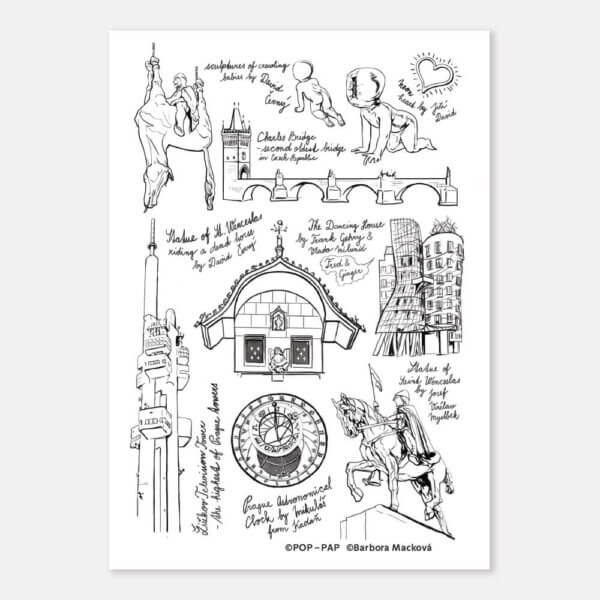 sculptures of crawling
babies by David
Černý
neon
heart by Jiří
David
Charles Bridge
- second oldest bridge
in Czech Republic
Statue of St. Wenceslas
riding a dead horse
by David Černý
The Dancing House
by Frank Gehry &
Vlado Milunić
Fred &
Ginger
Statue of
Saint Wenceslas
by Josef
Václav
Myslbek
Žižkov Television Tower
- the highest of Prague towers
Prague Astronomical
Clock by Mikuláš
from Kadaň
©POP – PAP ©Barbora Macková